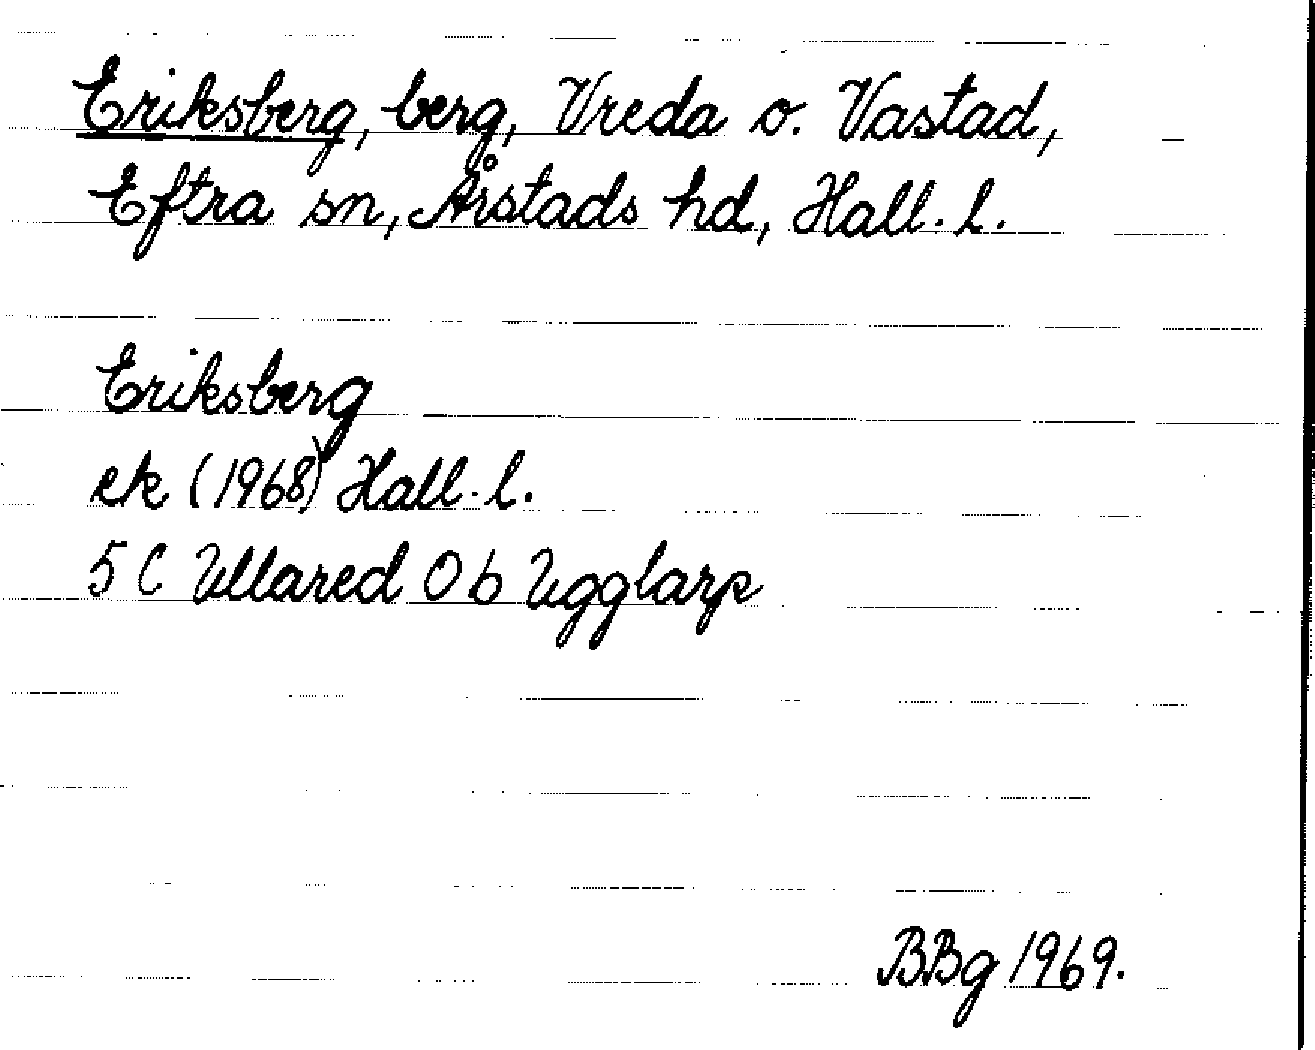 Eriksberg, berg, Vreda o. Vastad,
Eftra sn, Årstads hd, Hall. l.
Eriksberg
ek (1968) Hall. l.
5 C Ullared 0 b Ugglarp
BBg 1969.